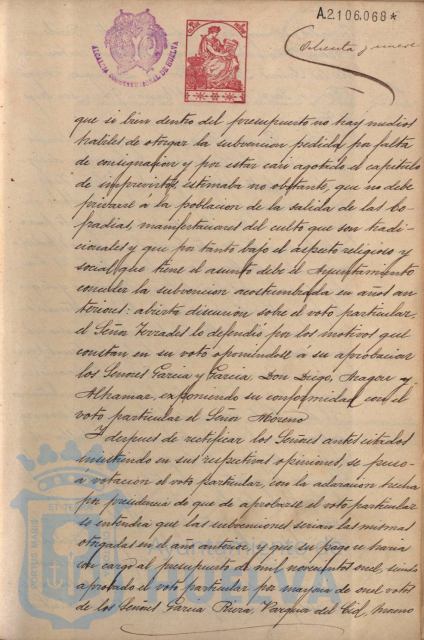 A.2.106.068*
Ochenta y nueve
ALCALDIA CONSTITUCIONAL DE HUELVA
que si bien dentro del presupuesto no hay medios
habiles de otorgar la subvencion pedida por falta
de consignacion y por estar casi agotado el capitulo
de imprevistos, estimaba no obstante, que no debe
privarse á la poblacion de la salida de las Co-
fradias, manifestaciones del culto que son tradi-
cionales y que por tanto bajo el aspecto religioso y
social que tiene el asunto debe el Ayuntamiento
conceder la subvencion acostumbrada en años an-
teriores: abierta discusion sobre el voto particular
el Señor Terrades lo defendió por los motivos que
constan en su voto oponiendose á su aprobacion
los Señores Garcia y Garcia Don Diego, Aragon y
Alhamar, exponiendo su conformidad con el
voto particular el Señor Moreno
Y despues de rectificar los Señores antes citados
insistiendo en sus respectivas opiniones, se puso
á votacion el voto particular, con la aclaracion hecha
por presidencia de que de aprobarse el voto particular
se entendia que las subvenciones serian las mismas
otorgadas en el año anterior, y que su pago se haria
con cargo al presupuesto de mil novecientos once, siendo
aprobado el voto particular por mayoria de once votos
de los Señores Garcia Rivera Vazquez del Cid, Moreno
PORTUS MARIS
Ayuntamiento de
HUELVA